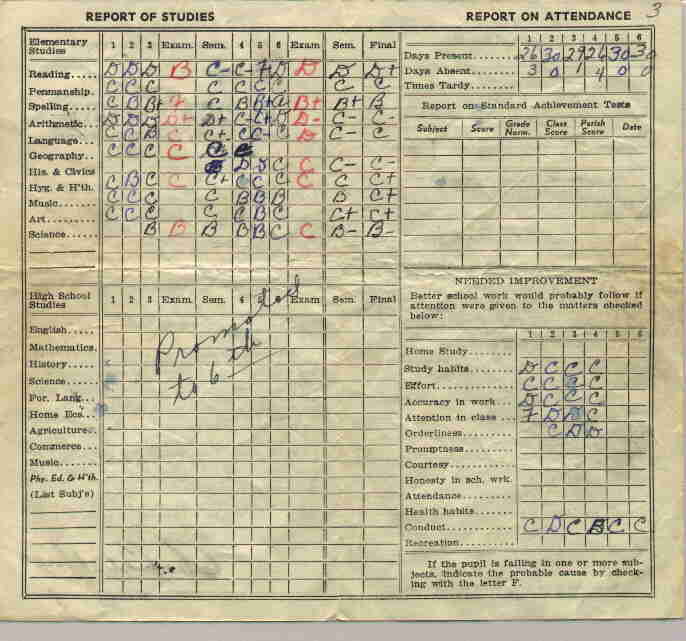 REPORT OF STUDIES
Elementary Studies 1 2 3 Exam. Sem. 4 5 6 Exam Sem. Final
Reading..... D D D B C- C- F D D D D+
Penmanship. C C C C C C C C C
Spelling...... C B B+ F C B B+ B+ B+ B
Arithmetic... D D D D+ D+ C- D- C- C-
Language.... C C B C C+ C C- C D C- C-
Geography.. C C C C C C
His. & Civics D D C C C- C-
Hyg. & H'th. C B C C C+ C C C C C C+
Music........ C C C C B B B B C+
Art........... C C C C C B C C+ C+
Science...... B B B B B C C B- B-
High School Studies 1 2 3 Exam. Sem. 4 5 6 Exam Sem. Final
English.....
Mathematics.
History.....
Science.....
For. Lang...
Home Ecs...
Agriculture..
Commerce...
Music.......
Phy. Ed. & H'th.
(List Subj's)
Promoted
to 6th
3
REPORT ON ATTENDANCE
1 2 3 4 5 6
Days Present....... 26 30 29 26 30 30
Days Absent....... 3 0 1 4 0 0
Times Tardy.......
Report on Standard Achievement Tests
Subject Score Grade Norm. Class Score Parish Score Date
NEEDED IMPROVEMENT
Better school work would probably follow if
attention were given to the matters checked
below:
1 2 3 4 5 6
Home Study........
Study habits........ D C C C
Effort.............. C C C C
Accuracy in work... D C C C
Attention in class... F D D C
Orderliness.......... C D D
Promptness........
Courtesy..........
Honesty in sch. wrk.
Attendance.........
Health habits.......
Conduct............ C D C B C C
Recreation..........
If the pupil is failing in one or more sub-
jects, indicate the probable cause by check-
ing with the letter F.